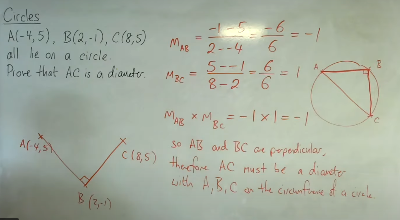 Circles
A(-4,5), B(2,-1), C(8,5)
all lie on a circle.
Prove that AC is a diameter.
M_AB = -1-5 / 2--4 = -6 / 6 = -1
M_BC = 5--1 / 8-2 = 6 / 6 = 1
M_AB × M_BC = -1 × 1 = -1
so AB and BC are perpendicular,
therefore AC must be a diameter
with A, B, C on the circumference of a circle
A
B
C
A(-4,5)
C(8,5)
B(2,-1)